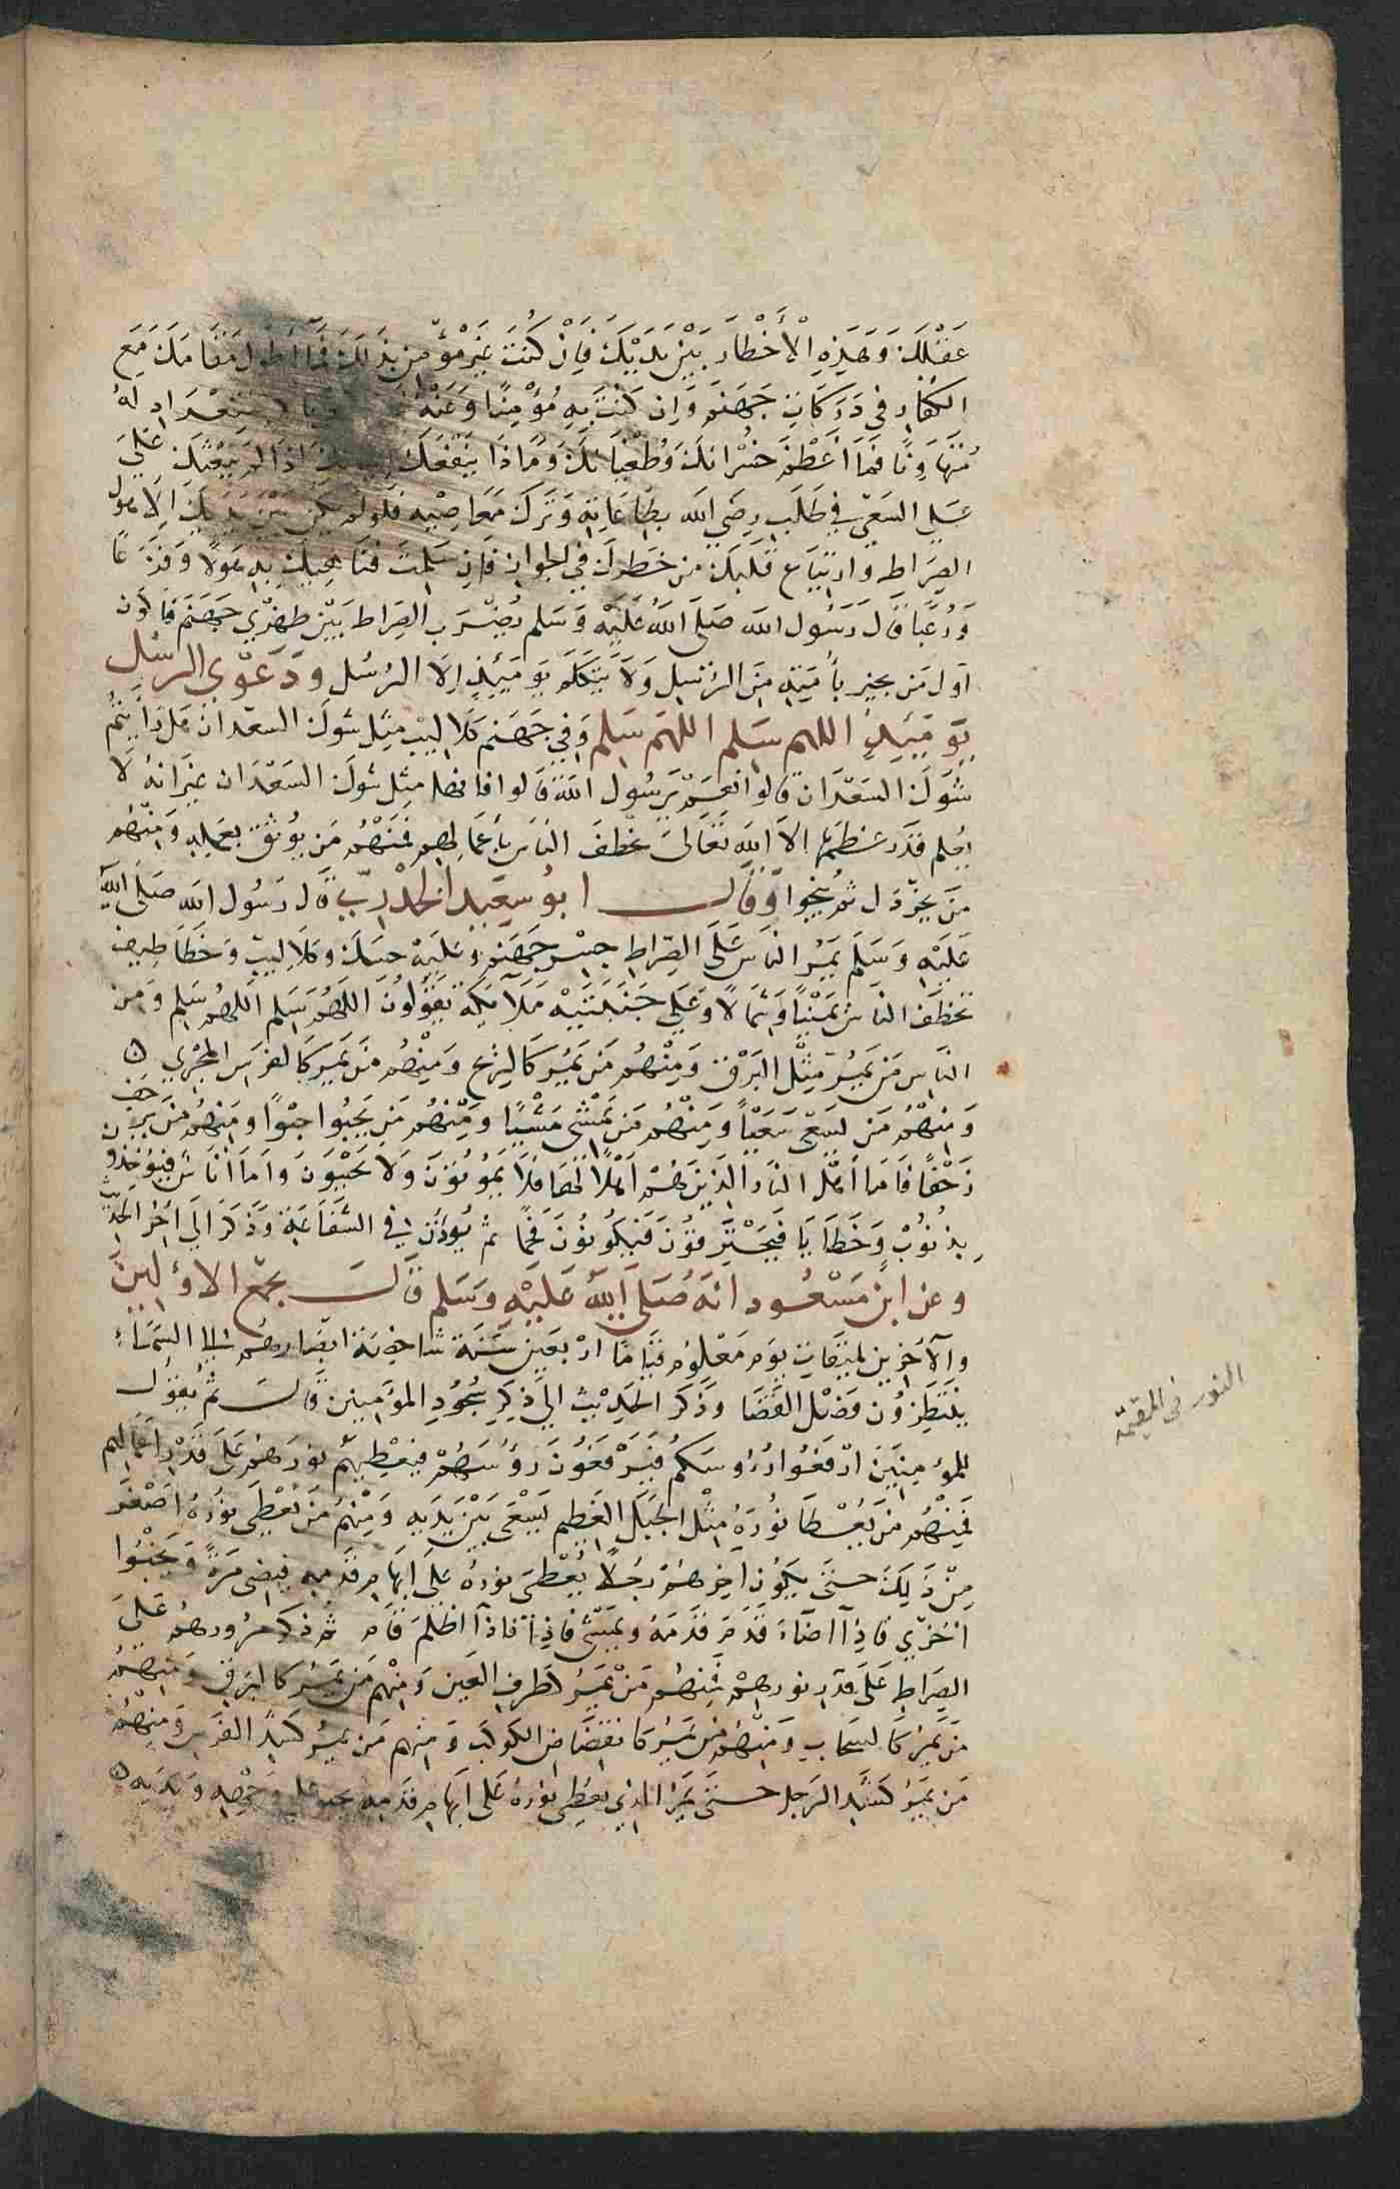 عَقْلِكَ وَهَذِهِ الْأَخْطَار بَيْنَ يَدَيْكَ فَاِنْ كُنْتَ غَيْرَ مُؤْمِنٍ بِذَلِكَ فَمَا اَطْوَل مَقَامَكَ مَعَ
الكفار في دَرَكَاتِ جَهَنَم وَاِن كُنْتَ بِهِ مُؤْمِنًا وَعَنْهُ
مُتَهَاوِنًا فَمَا أَعْظَمَ خُسْرَانَكَ وَطُغْيَانَكَ وَمَاذَا يَنْفَعُكَ اِذَا لَمْ يَبْعَثْكَ عَلَى
السَعْي فِي طَلَبِ رِضَى الله بِطَاعَاتِهِ وَتَرْكِ مَعَاصِيْهِ فَلَو لَم يَكُن بَيْنَ يَدَيْكَ اِلَا هَول
الصِرَاطِ وَارتِيَاع قَلبِكَ مِن خَطَر الجواز فَاِن سَلِمْتَ فنَاهِيْكَ بِهِ هَولًا وَفَزَعًا
وَرُعْبًا قَالَ رَسُول الله صَلَى اللهُ عَلَيْهِ وَسَلم يُضْرَب الصِرَاط بَيْن ظهرَي جَهَنَم فَاَكون
اول مَن يجيز بأُمَتِهِ مِنَ الرُسل وَلَا يَتَكَلَم يَوْمَئِذٍ اِلَا الرُسُل وَدَعْوَى الرسُل
يَوْمَئِذٍ اللهم سَلم اللهُم سَلم وَفي جَهَنم كَلَاليب مِثل شَوك السعدان هَل رَأَيتُم
شَوك السَعْدَان قالوا نعَم يَرَسُول الله قَالوا فانها مِثل شوك السَعْدَان غَيْرَ انهُ لَا
يعلم قدر عِظَمهَا الا الله تَعَالَى تخْطف الناسَ بأعمَالِهِم فمنْهُم مَن يُوثَق بعَمَلِهِ وَمِنهُم
مَن يخَرْدَل ثم ينجوا وَقَال ابو سَعِيد الخدريّ قَال رَسُول الله صَلَى الله
عَلَيْهِ وَسَلَم يَمُر الناس عَلَى الصِرَاط جِسْر جَهَنم وعَلَيْهِ حسك وكلَاليب وَخَطَاطِيف
تخطَف الناسَ يَمِيْنًا وَشِمَالًا وَعَلى جَنَبَتَيْهِ مَلَآئِكَة يَقُولُونَ اَللهُم سَلم اَللهُم سَلم وَمِن
الناسِ مَن يَمُر مِثْل البَرْق وَمِنْهُم مَن يَمُر كَالرِيْح وَمِنْهُم مَن يَمُر كَالفرَس المجْرِي
وَمِنْهُمْ مَن يَسْعَى سَعْيًا وَمِنْهُم مَن يَمْشِي مَشْيًا وَمِنهُم مَن يَحبُوا حَبْوًا وَمِنهُم مَن يَزحَف
زَحْفًا فَاَمَا أَهْل النار الَذِينَ هُمْ اَهْلًا لَهَا فَلَا يَمُوتُونَ وَلَا يَحْيَوْنَ وَاَمَا أُنَاس فيُؤخَذُون
بِذنُوب وَخَطَايَا فَيَحْتَرِقُونَ فَيَكُونُونَ فَحْمًا ثم يُوذَن في الشَفَاعَة وَذَكَرَ اِلَى آخر الحَدِيث
وعن ابن مَسْعُود انَهُ صَلَى اللهُ عَلَيْهِ وَسَلَم قَال يجْمَع الاولين
والآخِرِين لمِيقَات يَوم مَعْلُوم قِيَامًا ارْبَعِين سَنَة شَاخِصَة ابصَارهُم الى السَمَاء
يَنتَظِرُون فَصْل القَضَا وَذَكَر الحَدِيْث اِلى ذِكر سُجُودِ المؤمِنِين قَالَ ثُم يقول
للمؤمِنِينَ ارْفَعُوا رُؤُوسَكُم فَيَرْفَعُونَ رؤُسَهُم فيُعْطِيْهِم نورَهُم عَلَى قَدْر اَعْمَالِهِم
فمِنْهُم مَن يُعْطَا نُورَهُ مِثْل الجَبَل العَظيم يَسْعَى بَيْن يَدَيهِ وَمِنْهُم مَن يُعْطَى نورَهُ اصْغَر
مِنْ ذَلِكَ حَتى يَكُون اَخِرهُمْ رَجُلًا يُعْطَى نورهُ عَلَى اِبهَام قدَمِهِ فيُضي مَرَةً وَيَخبُوا
اخرَى فَاِذَا اضآءَ قَدم قدَمهُ ويمشى فاِذا اظلَمَ قَام ثم ذكر مرُورهُم عَلَى
الصِرَاطِ عَلَى قدر نورهِمْ فمِنهُم مَنْ يَمُر كطَرف العَين وَمِنْهم مَن يَمُر كالبَرق وَمِنهُم
مَن يَمُر كَالسَحَاب وَمِنْهُم مَن يَمُر كانقِضَاض الكَوكَب وَمِنهم مَن يَمُر كشَد الفَرس وَمِنْهُم
مَن يَمُر كَشَد الرَجل حَتى يَمُر الذي يُعْطَى نورهُ عَلَى اِبهَام قدَمِه يحبو على وَجْهِه وَيَدَيه
النور في القيمة